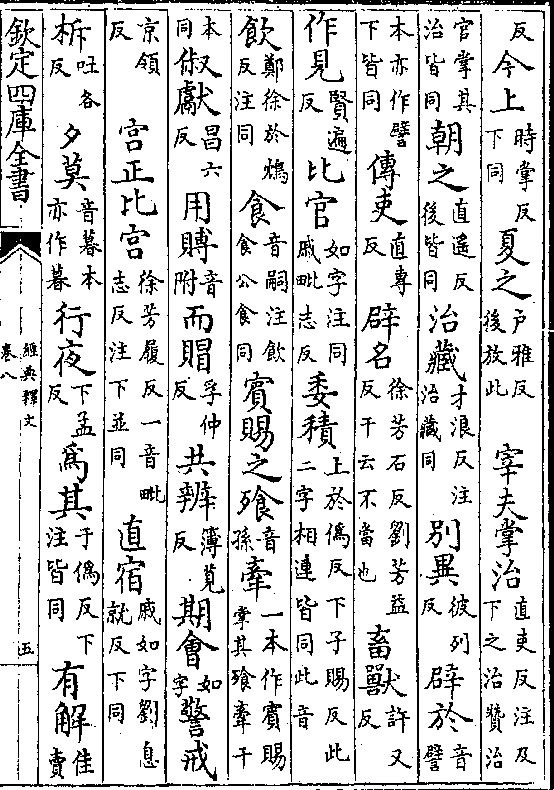 反今上時掌反下同夏之户雅反後放此宰夫掌治直吏反注及下之治贊治
官掌其治皆同朝之直遥反後皆同治藏才浪反注治藏同別異彼列反辟於音譬
本亦作譬下皆同傳吏直專反辟名徐芳石反劉芳益反干云不當也畜獸許又反
作見賢遍反比官如字注同戚毗志反委積上於僞反下子賜反此二字相連皆同此音
飲鄭徐於鴆反注同食音嗣注飲食公食同賓賜之飧音孫牽一本作賓賜掌其飧牽干
本同俶獻昌六反用賻音附而賵孚仲反共辨薄莧反期會如字警戒
京領反宫正比宫徐芳履反一音毗志反注下並同直宿戚如字劉息就反下同
柝吐各反夕莫音暮本亦作暮行夜下孟反爲其于僞反下注皆同有解佳賣
欽定四庫全書
經典釋文
卷八
五